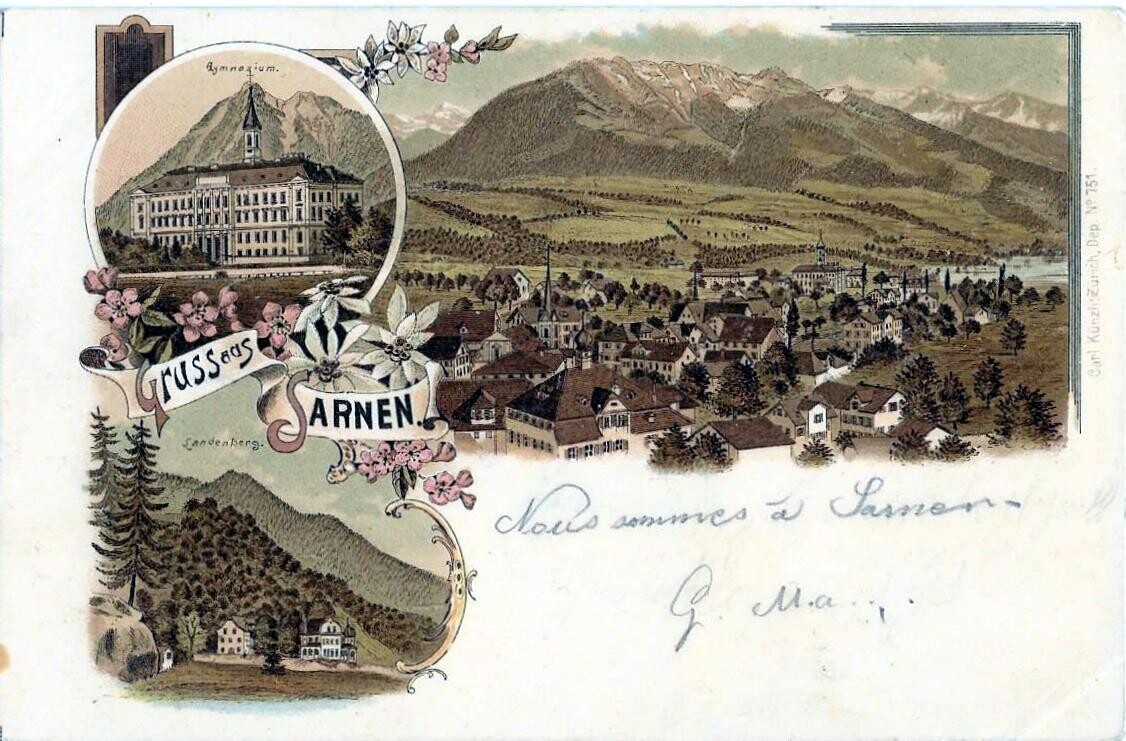 Gymnasium.
GRUSS aus
SARNEN.
Landenberg.
Nous sommes à Sarnen -
G. Ma...
Carl Künzli-Zürich, Dep. Nº 751.